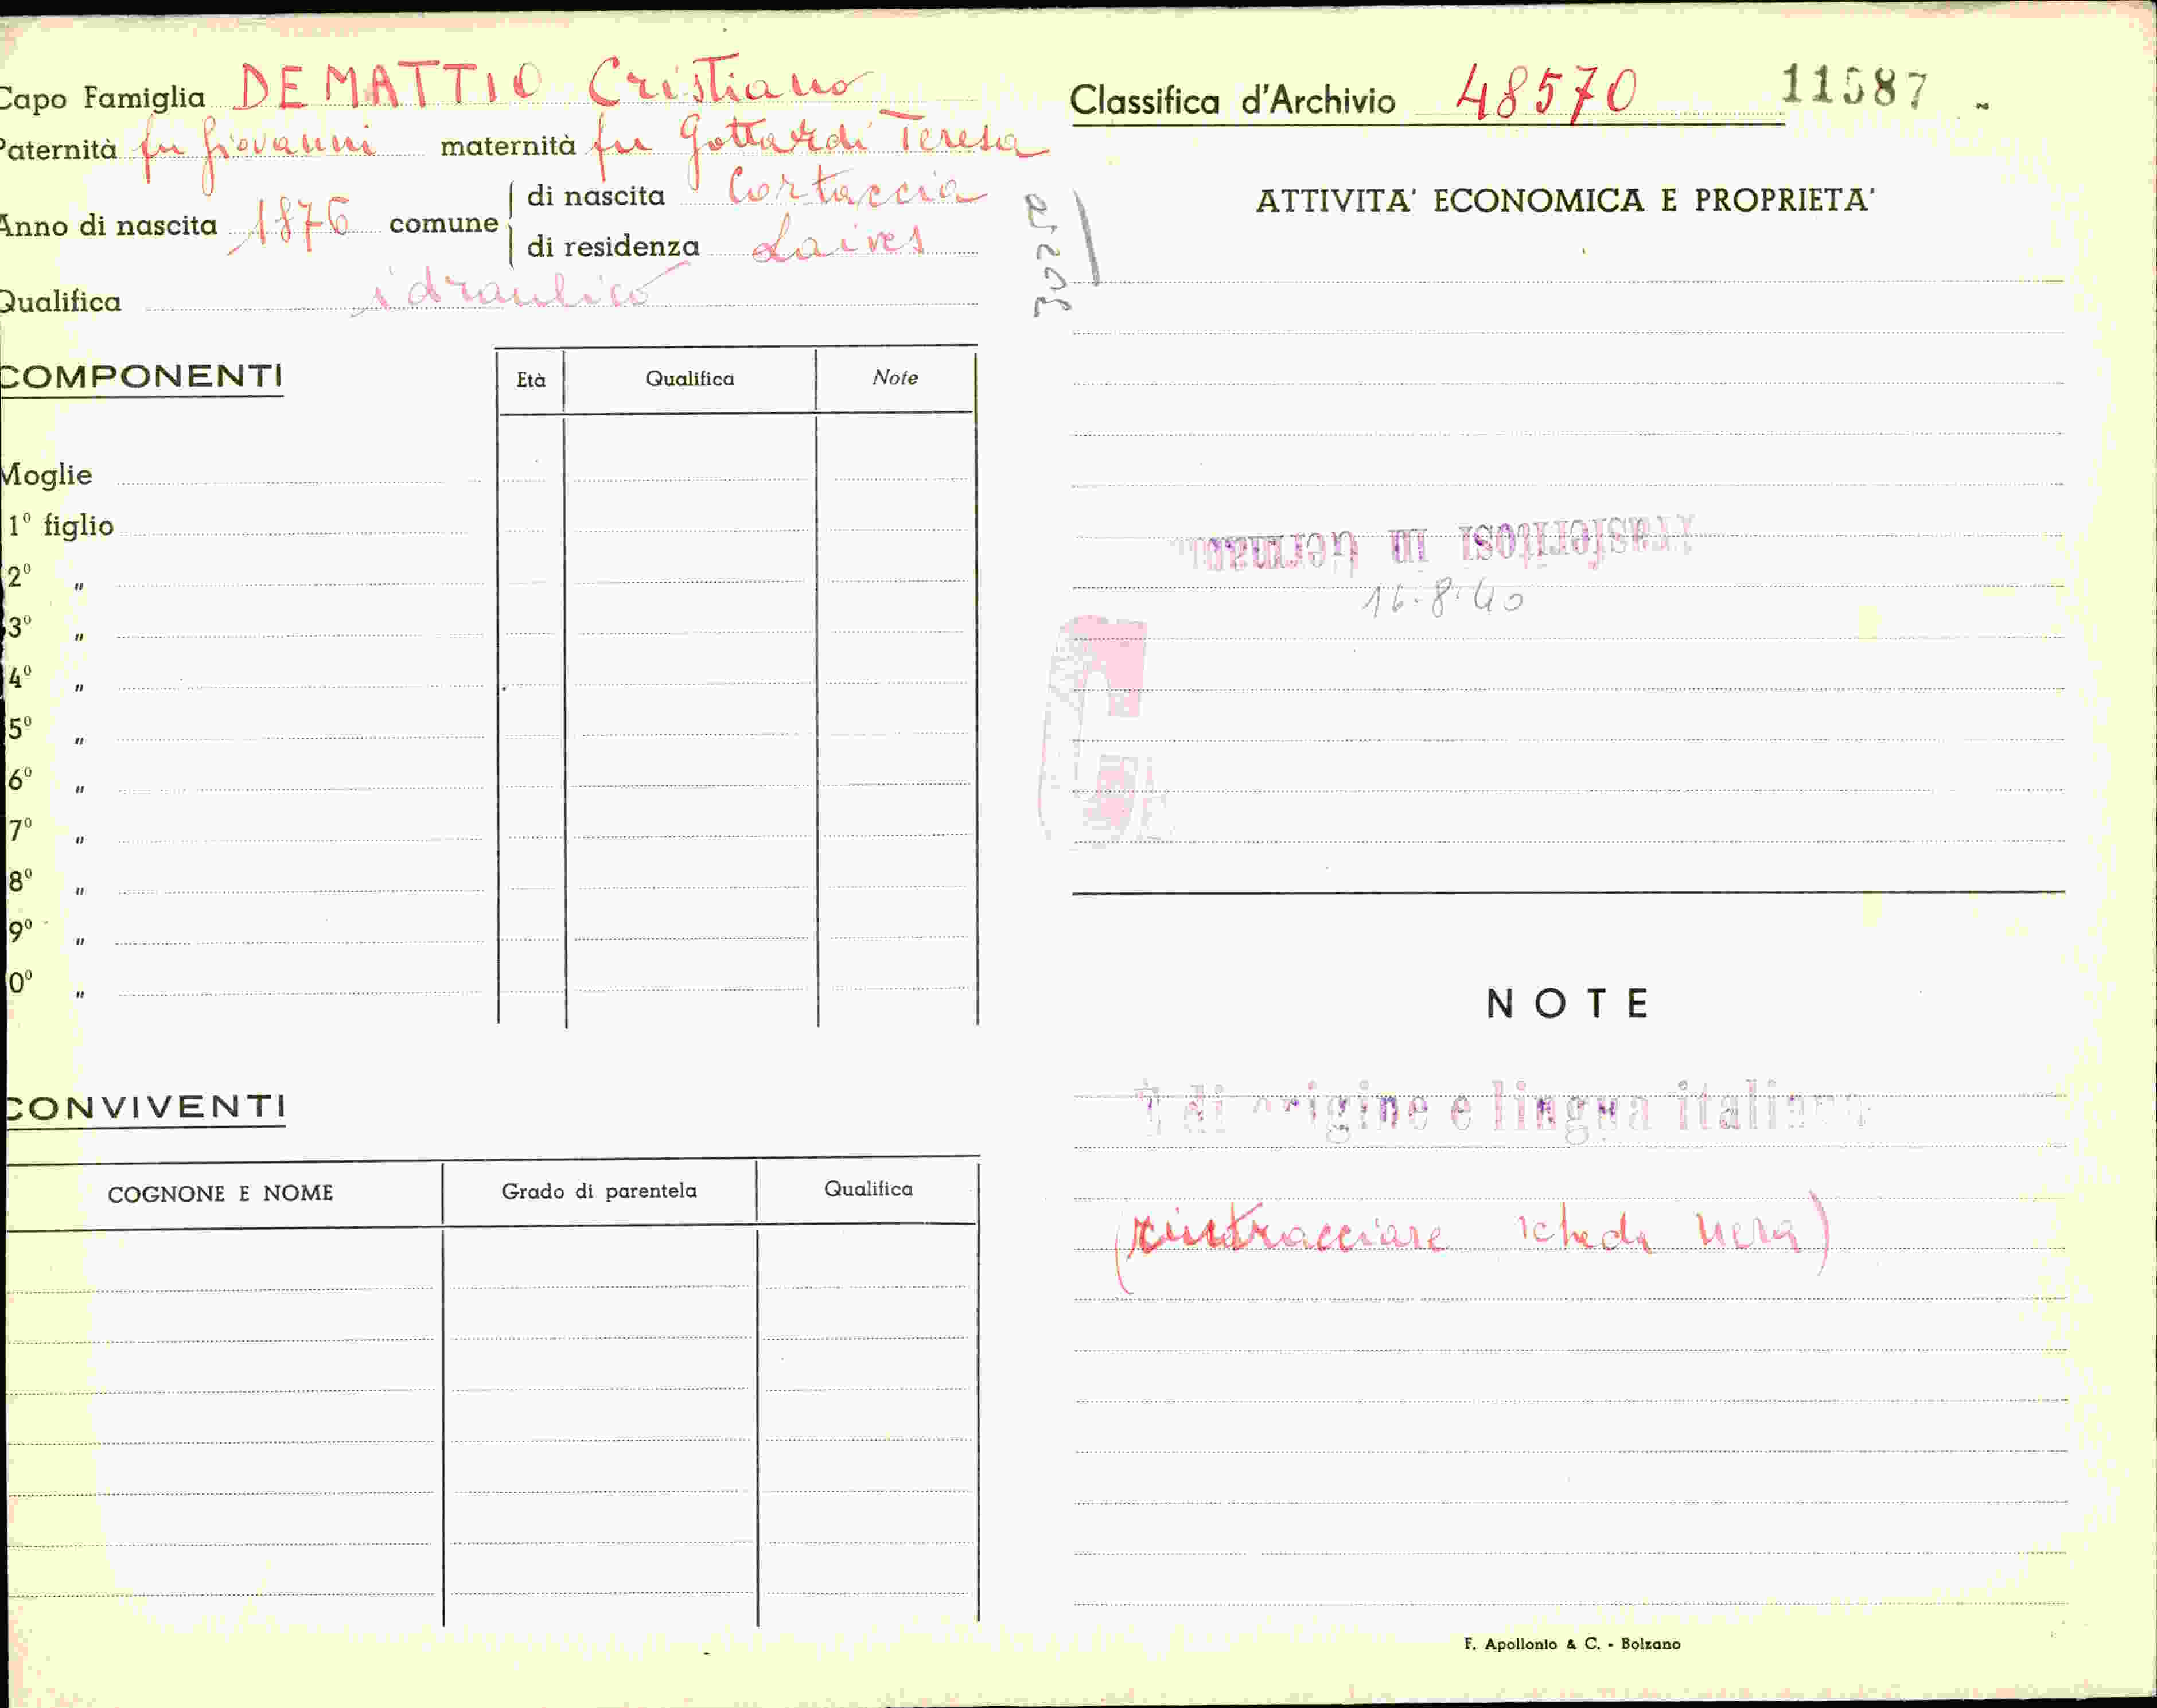 Capo Famiglia DEMATTIO Cristiano
Paternità fu Giovanni maternità fu Gottardi Teresa
Anno di nascita 1876 comune di nascita Cortaccia
di residenza Laives
Qualifica idraulico
COMPONENTI
Età Qualifica Note
Moglie
1º figlio
2º "
3º "
4º "
5º "
6º "
7º "
8º "
9º "
0º "
CONVIVENTI
COGNONE E NOME Grado di parentela Qualifica
Classifica d'Archivio 48570 11587
ATTIVITA' ECONOMICA E PROPRIETA'
Trasferitosi in German
16.8.40
NOTE
di origine e lingua italiana
(rintracciare scheda nera)
F. Apollonio & C. - Bolzano